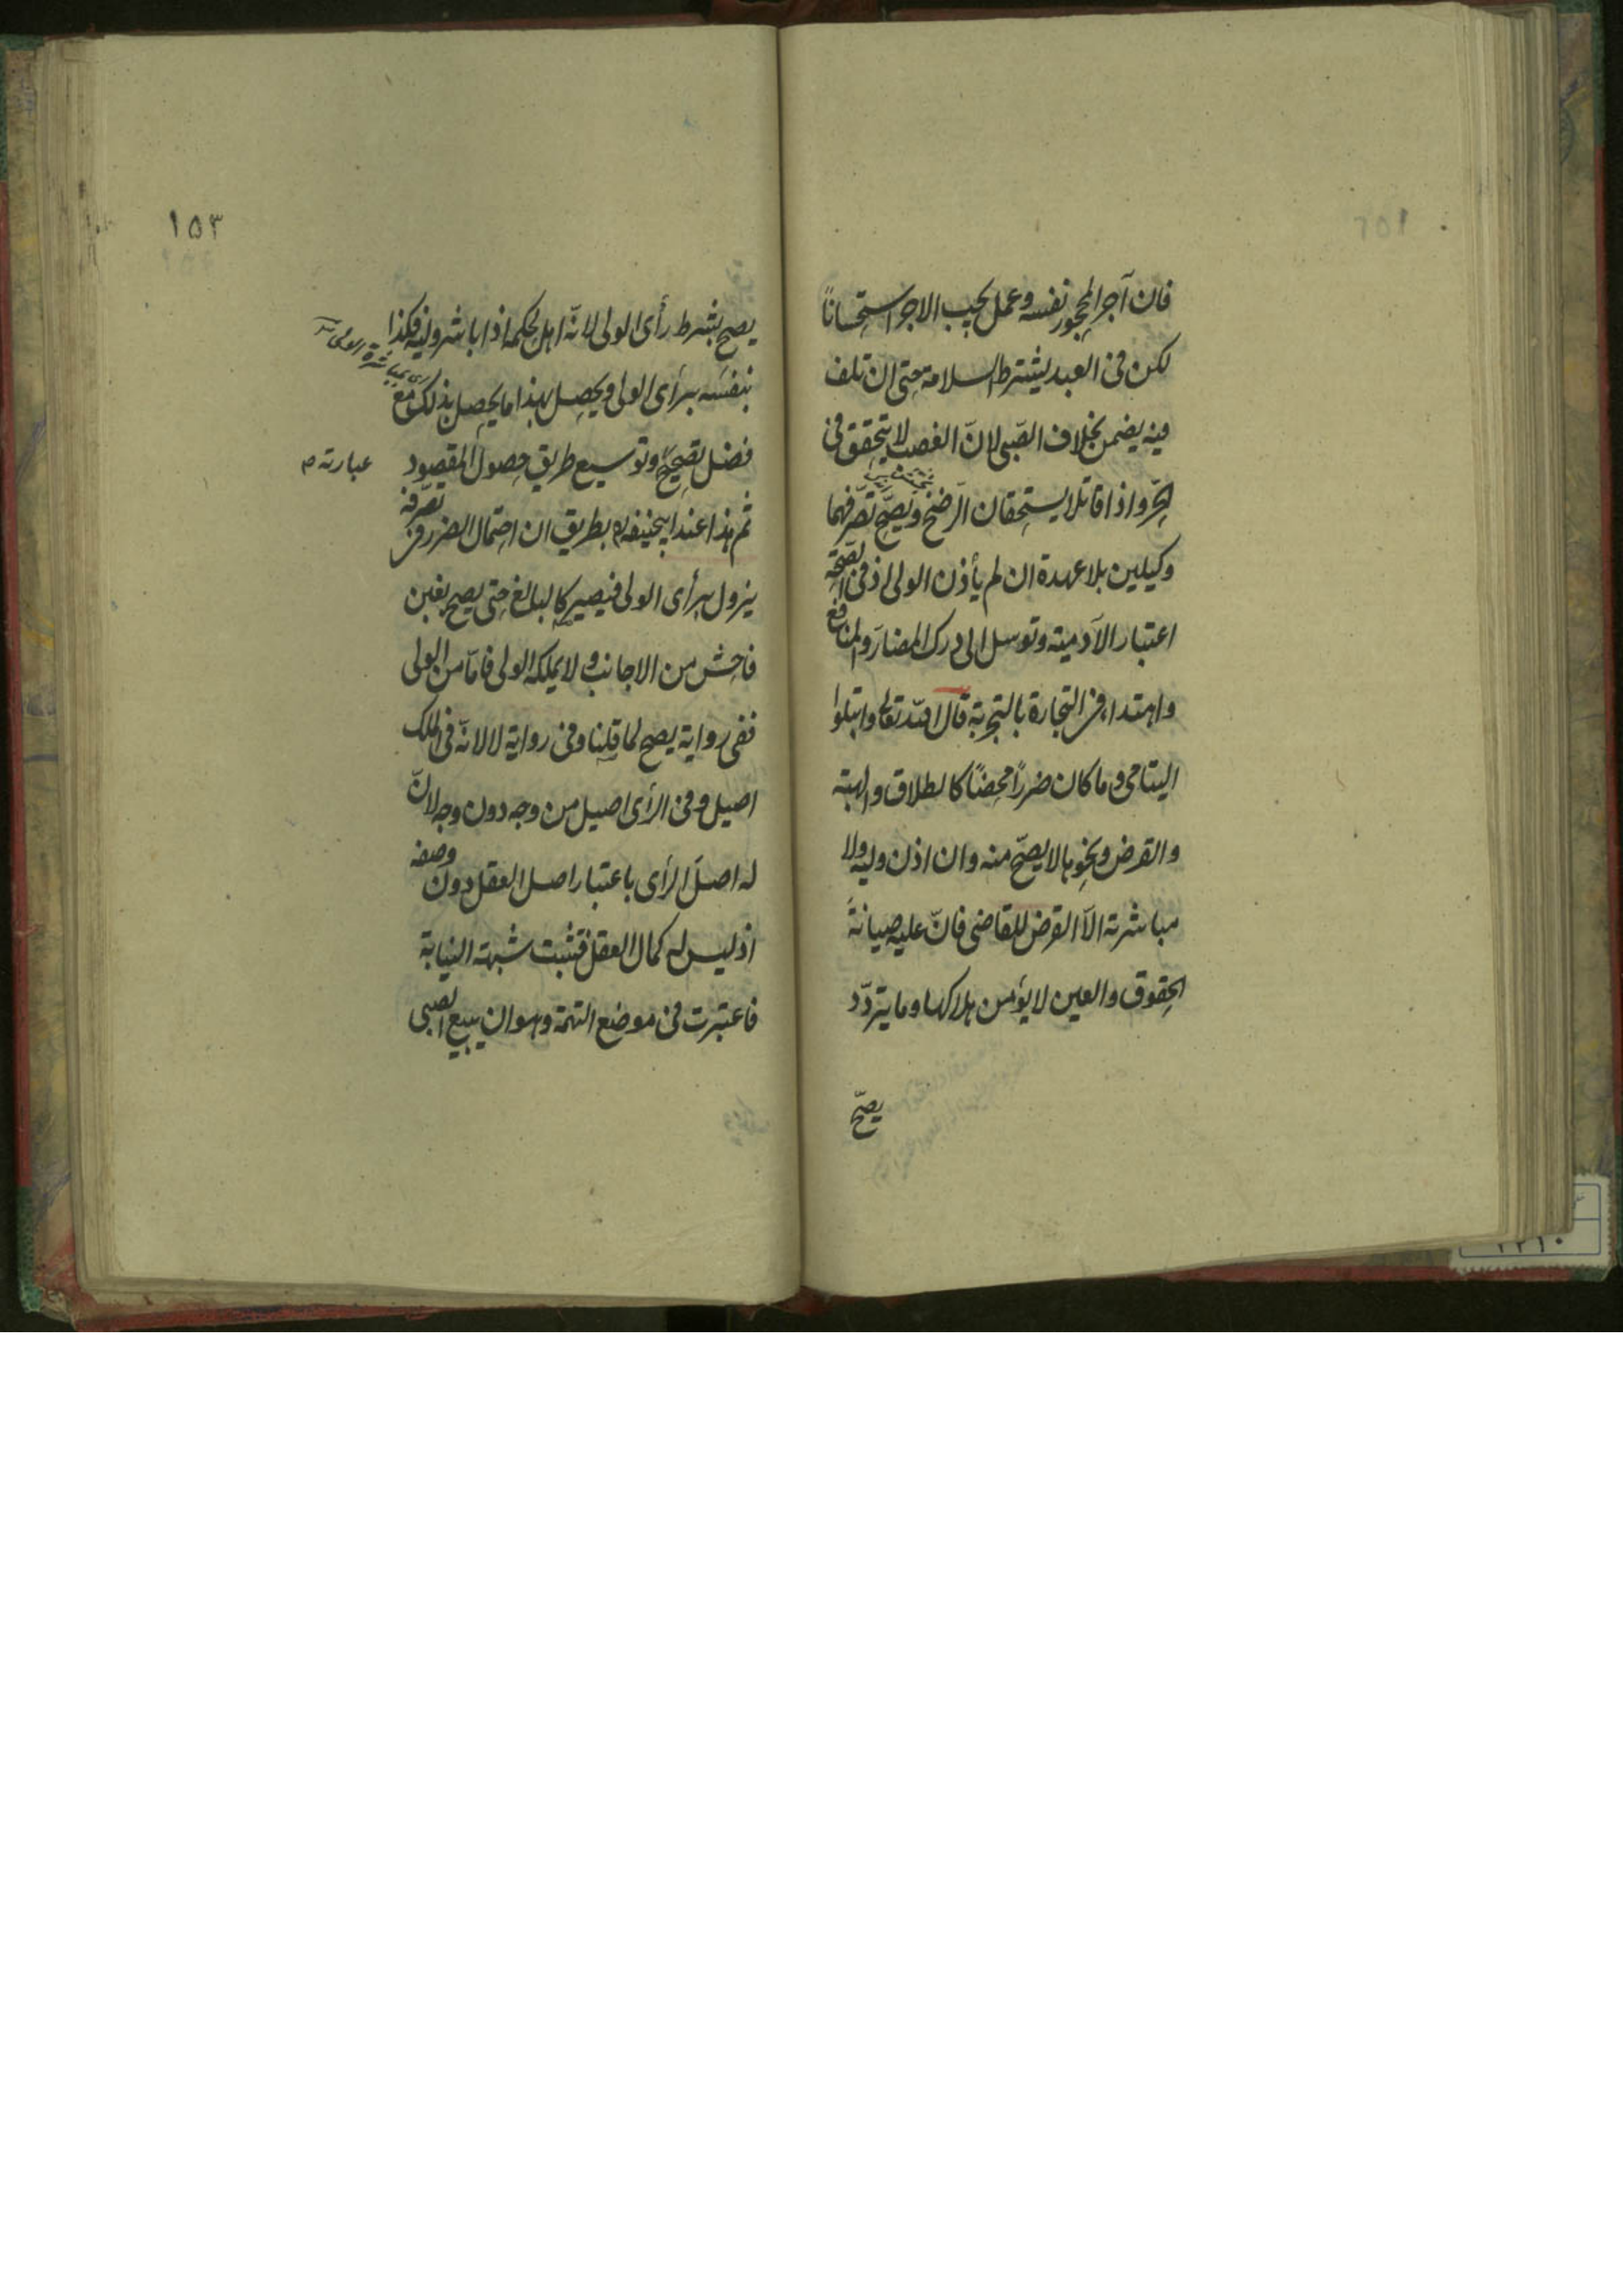 فان آجر المحجور نفسه وعمل يجب الاجر استحساناً
لكن فى العبد يشترط السلامة حتى ان تلف
فيه يضمن بخلاف الصّبى لانّ الغصب لا يتحقق فى
الحرّ واذا قاتلا يستحقان الرّضخ ويصحّ تصرّفهما
وكيلين بلا عهدة ان لم يأذن الولى اذ فى الصّحة
اعتبار الآدمية وتوسل الى درك المضارّ والمنافع
واهتداء فى التجارة بالتجربة قال الله تعالى وابتلوا
اليتامى وما كان ضرراً محضاً كالطلاق والهبة
والقرض ونحوها لا يصحّ منه وان اذن وليه ولا
مباشرته الّا القرض للقاضى فانّ عليه صيانةً
الحقوق والعين لا يؤمن هلاكها وما يتردّد
يصحّ
١٥٣
يصح بشرط رأى الولى لانّه اهل لحكمه اذا باشر وليه فكذا
بنفسه برأى الولى ويحصل بهذا ما يحصل بذلك مع
اى بمباشرة الولى
فضل تصحيح وتوسيع طريق حصول المقصود
عبارته م
ثم هذا عند ابيحنيفة بطريق ان احتمال الضرر فى تصرّفه
يزول برأى الولى فيصير كالبالغ حتى يصح بغبن
فاحش من الاجانب ولا يملكه الولى فامّا من الولى
ففى رواية يصح لما قلنا وفى رواية لا لانّه فى الملك
اصيل وفى الرأى اصيل من وجه دون وجه لانّ
له اصل الرأى باعتبار اصل العقل دون وصفه
اذ ليس له كمال العقل فتثبت شبهة النيابة
فاعتبرت فى موضع التهمة وهو ان يبيع الصبى